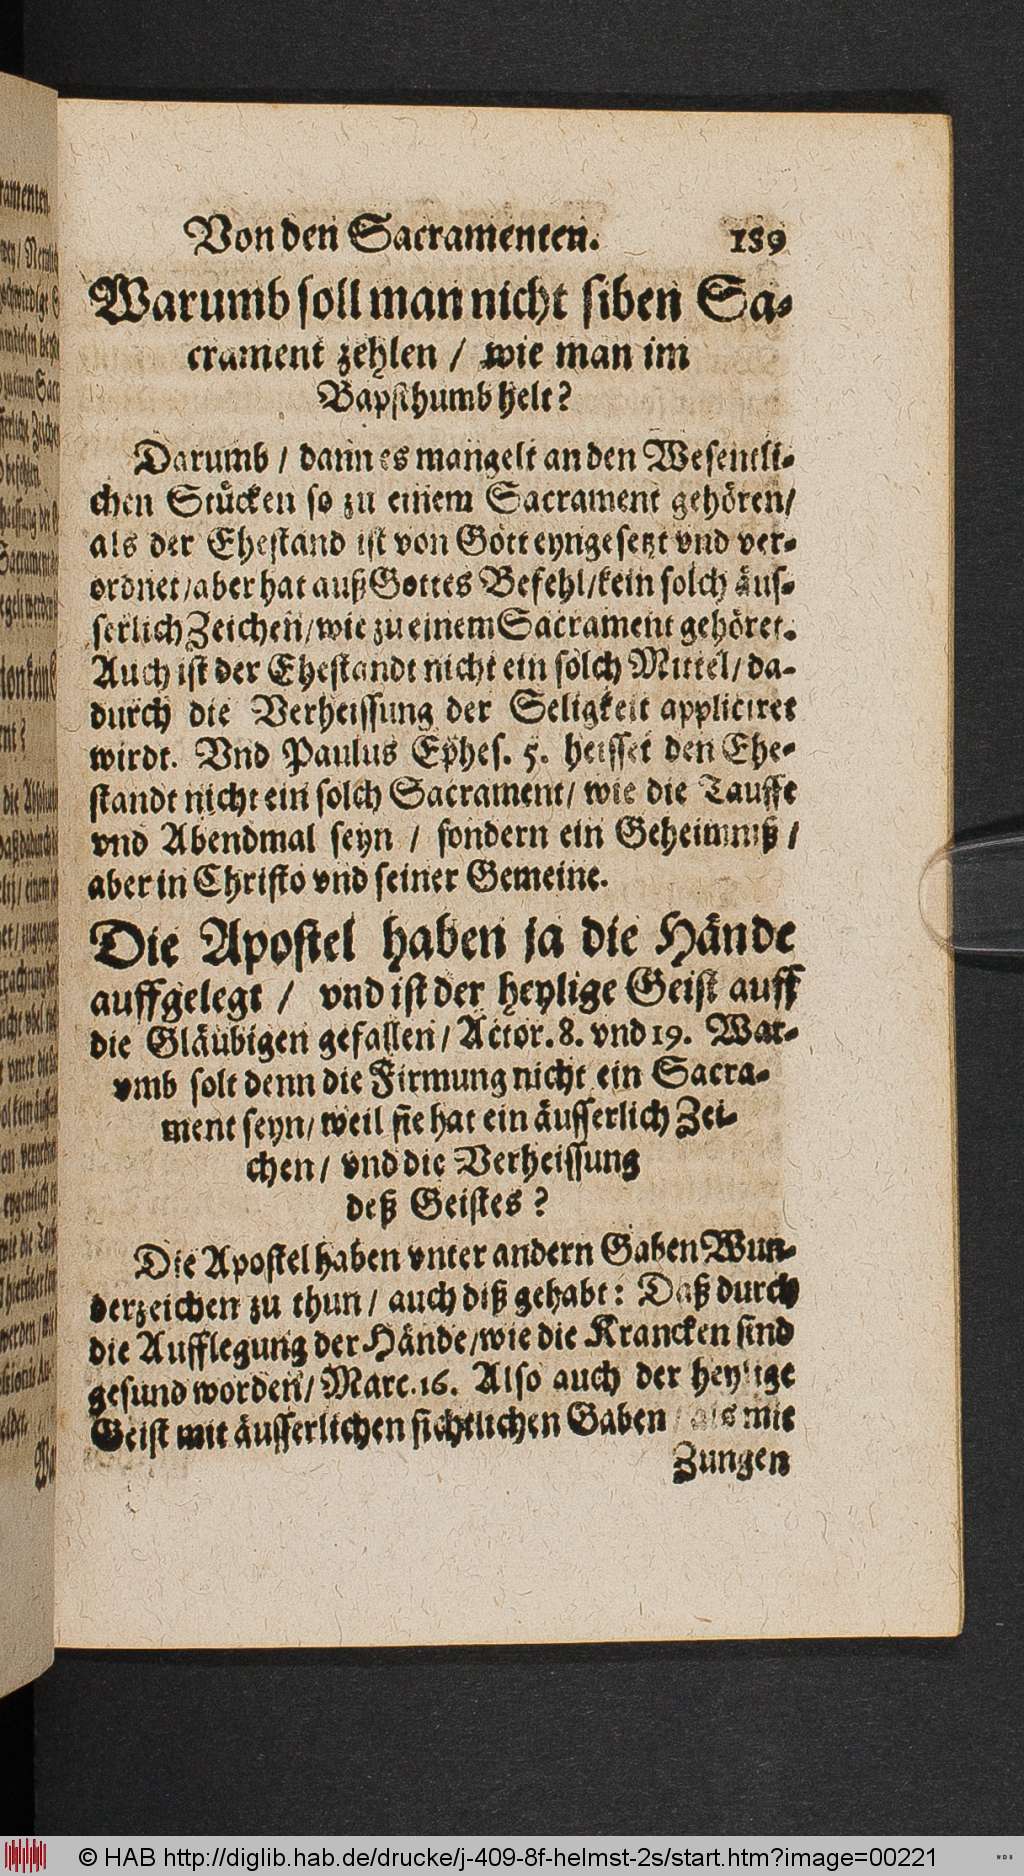 Von den Sacramenten. 189
Warumb soll man nicht siben Sa-
crament zehlen / wie man im
Bapsthumb helt?
Darumb / dann es mangelt an den Wesentli-
chen Stücken so zu einem Sacrament gehören/
als der Ehestand ist von Gott eyngesetzt vnd ver-
ordnet/aber hat auß Gottes Befehl/kein solch äus-
serlich Zeichen/wie zu einem Sacrament gehöret.
Auch ist der Ehestandt nicht ein solch Mittel/da-
durch die Verheissung der Seligkeit appliciret
wirdt. Vnd Paulus Ephes. 5. heisset den Ehe-
standt nicht ein solch Sacrament/ wie die Tauffe
vnd Abendmal seyn / sondern ein Geheimniß /
aber in Christo vnd seiner Gemeine.
Die Apostel haben ja die Hände
auffgelegt / vnd ist der heylige Geist auff
die Gläubigen gefallen/ Actor. 8. vnd 19. War-
vmb solt denn die Firmung nicht ein Sacra-
ment seyn/ weil sie hat ein äusserlich Zei-
chen/ vnd die Verheissung
deß Geistes?
Die Apostel haben vnter andern Gaben Wun-
derzeichen zu thun/ auch diß gehabt: Daß durch
die Aufflegung der Hände/wie die Krancken sind
gesund worden/ Marc. 16. Also auch der heylige
Geist mit äusserlichen sichtlichen Gaben / als mit
Zungen
© HAB http://diglib.hab.de/drucke/j-409-8f-helmst-2s/start.htm?image=00221